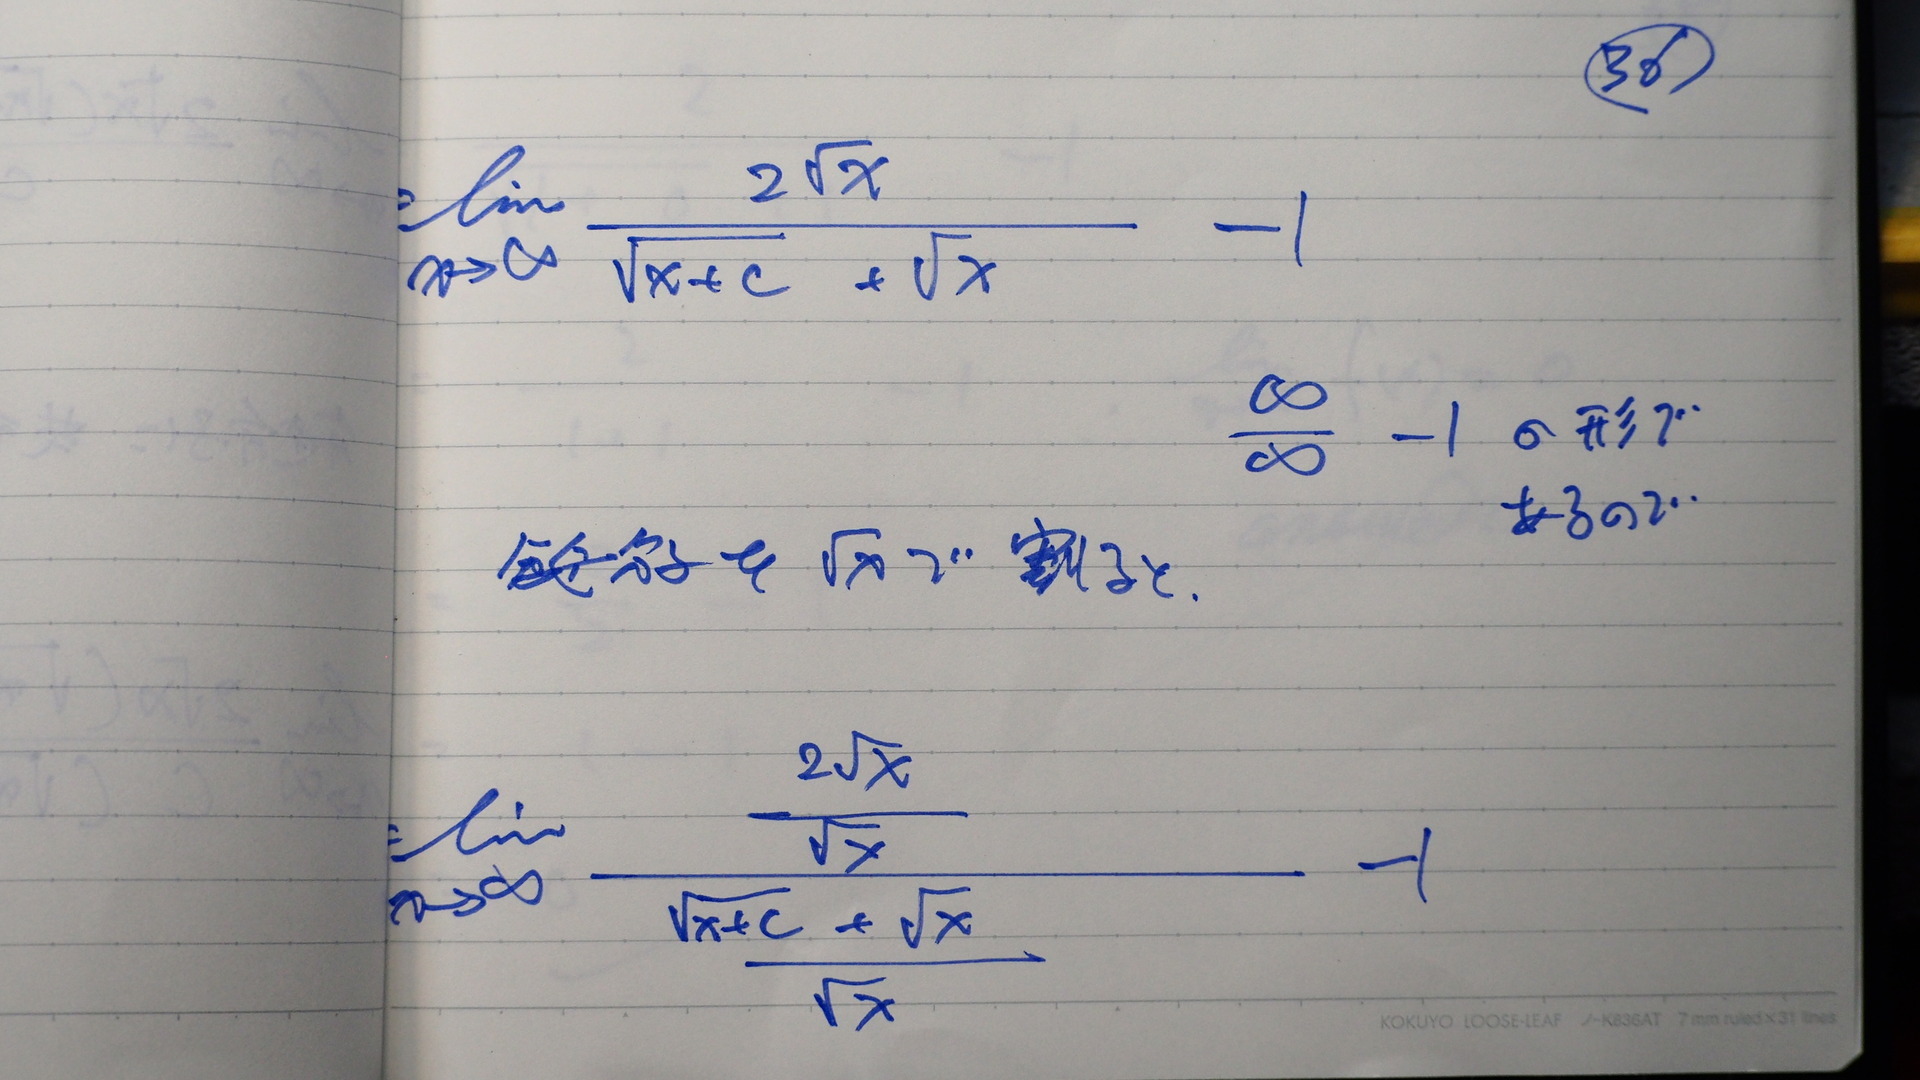 36
= lim x→∞ 2√x / (√(x+c) + √x) − 1
∞/∞ − 1 の形で
あるので
分子を √x で 割ると.
= lim x→∞ (2√x / √x) / ((√(x+c) + √x) / √x) − 1
KOKUYO LOOSE-LEAF ノ-K836AT 7 mm ruled × 31 lines